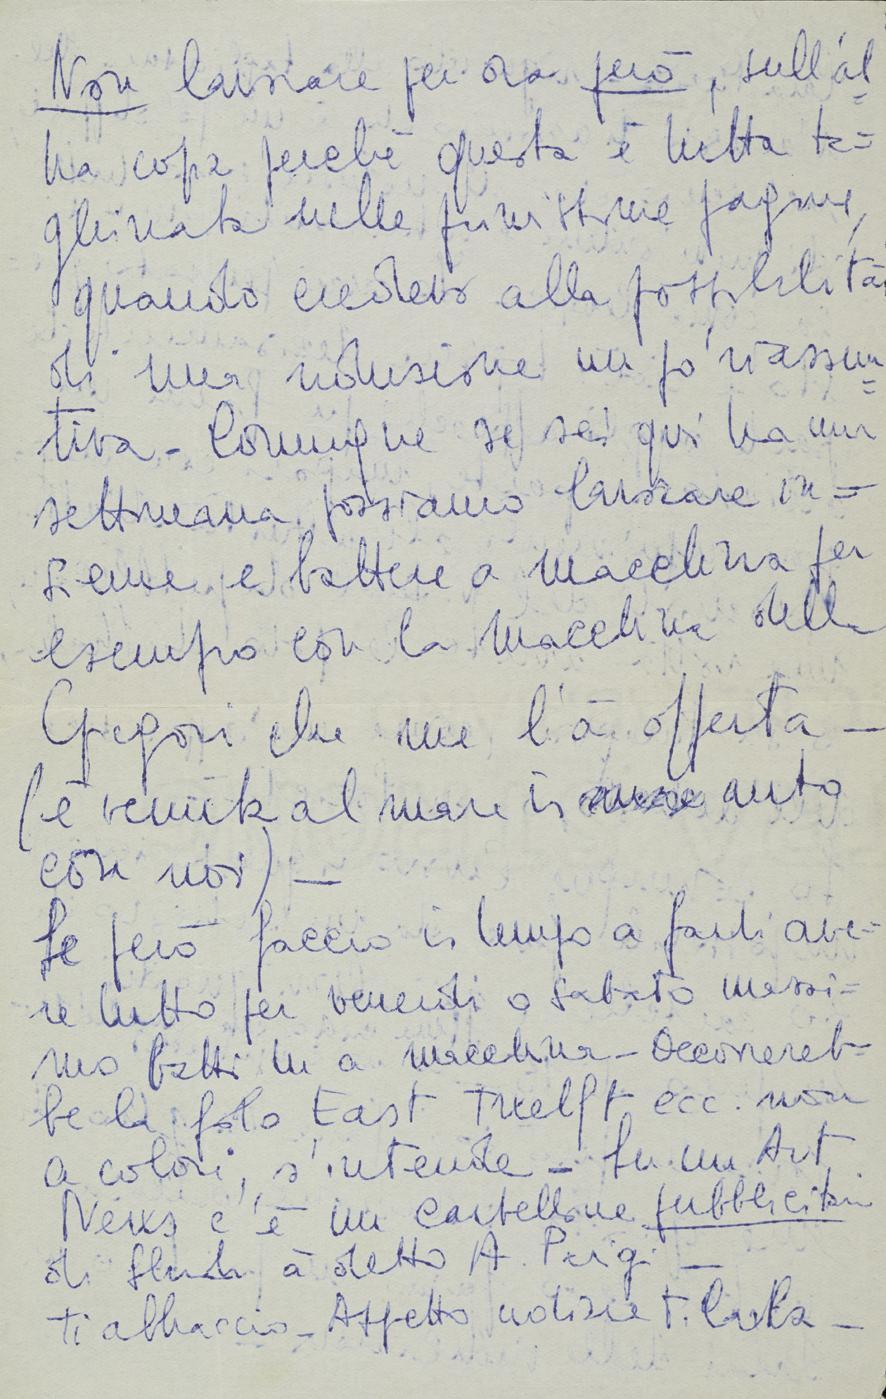 Non lavorare per ora però, sull'al=
tra copia perchè questa è tutta ta=
gliuzzata nelle primissime pagine,
quando credevo alla possibilità
di una riduzione un po' riassun=
tiva - Comunque se sei qui tra una
settimana possiamo lavorare in=
sieme e battere a macchina per
esempio con la macchina della
Gregori che me l'à offerta -
(è venuta al mare in auto
con noi) -
Se però faccio in tempo a farti ave=
re tutto per venerdì o sabato massi=
mo batti tu a macchina - Occorrereb=
be la foto East Twelft ecc. non
a colori, s'intende - Su un Art
News c'è un cartellone pubblicitario
di à detto A.
ti abbraccio - Aspetto notizie t.